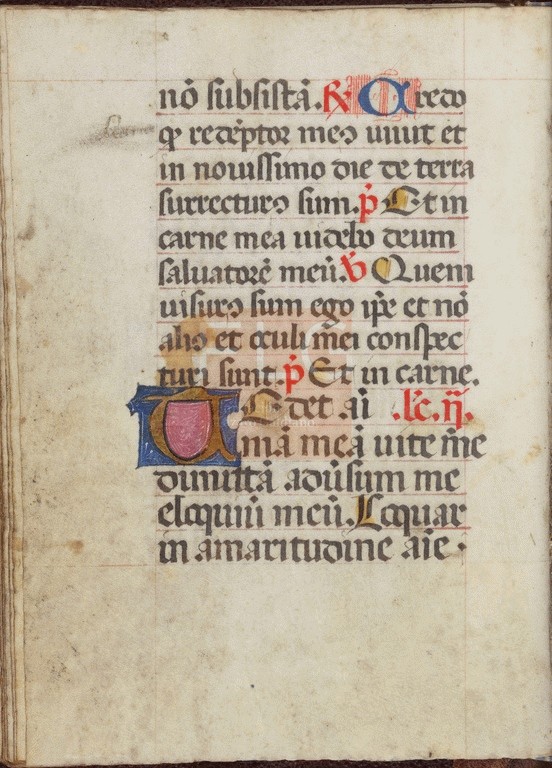 nō subsistā. R̷ Credo
qꝫ redēptor meꝰ uiuit et
in nouissimo die de terra
surrecturꝰ sum. p̄ Et in
carne mea uidebo deum
saluatorē meū. V̷ Quem
uisurꝰ sum ego ip̄e et nō
aliꝰ et oculi mei conspec
turi sunt. p̄ Et in carne.
TEdet aī .lc̄. ij.
mā meā uite m̄e
dimittā adūsum me
eloquiū meū. Loquar
in amaritudine aīe.